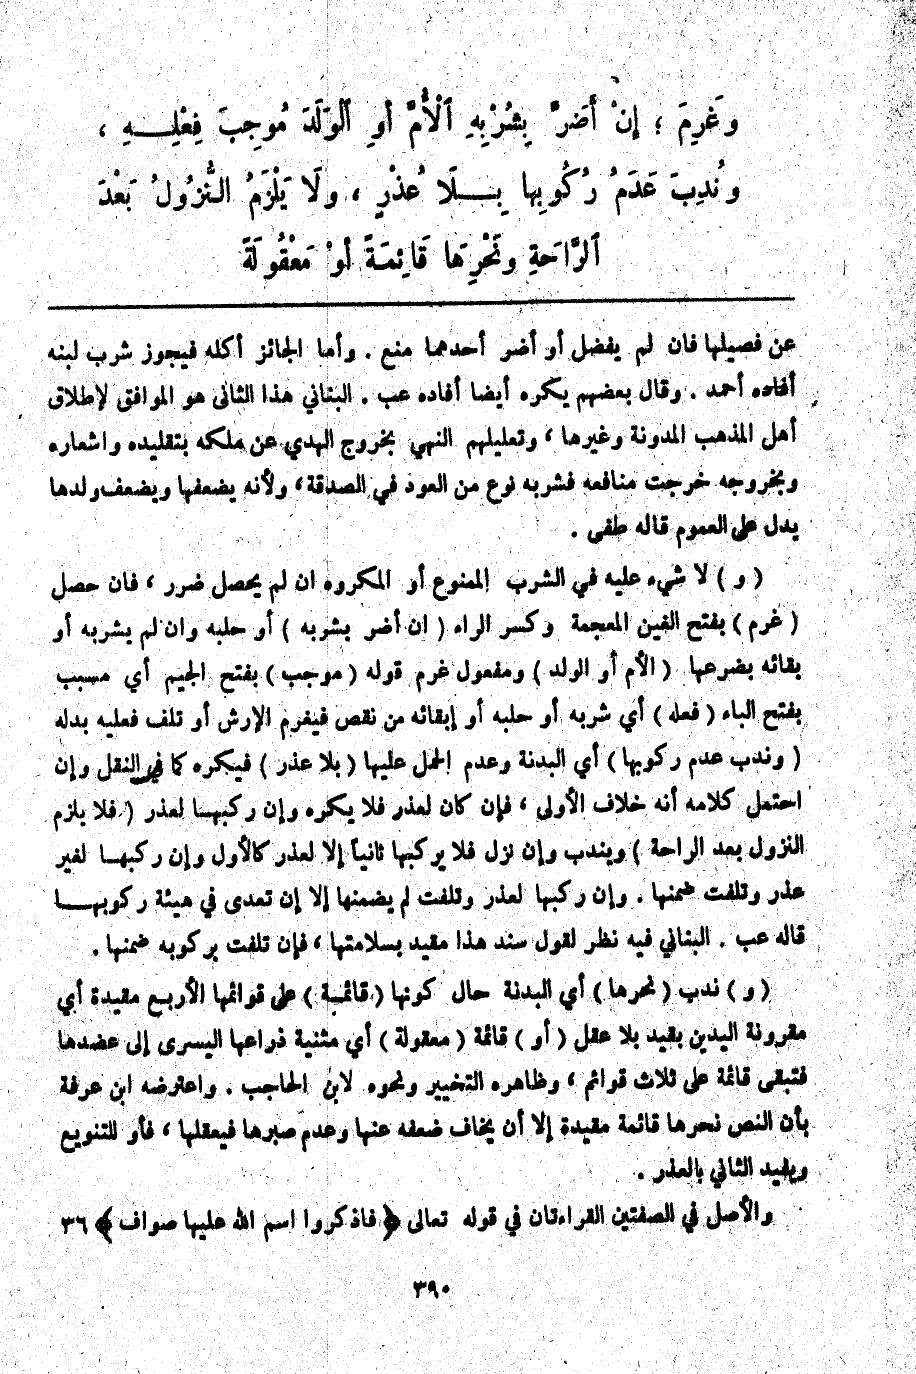 وَغَرِمَ ؛ إِنْ أَضَرَّ بِشُرْبِهِ ٱلْأُمَّ أَوِ ٱلْوَلَدَ مُوجِبَ فِعْلِـــهِ ،
وَنُدِبَ عَدَمُ رُكُوبِها بِـــلَا عُذْرٍ ، ولَا يَلْزَمُ النُّزُولُ بَعْدَ
ٱلرَّاحَةِ ونَحْرِهَا قَائِمَةً أوْ مَعْقُولَةً
عن فصيلها فان لم يفضل أو أضر أحدهما منع . وأما الجائز أكله فيجوز شرب لبنه
أفاده أحمد . وقال بعضهم يكره أيضا أفاده عب . البناني هذا الثانى هو الموافق لإطلاق
أهل المذهب المدونة وغيرها ، وتعليلهم النهي بخروج الهدي عن ملكه بتقليده واشعاره
وبخروجه خرجت منافعه فشربه نوع من العود في الصدقة ، ولأنه يضعفها ويضعف ولدها
يدل على العموم قاله طفى .
( و ) لا شيء عليه في الشرب الممنوع أو المكروه ان لم يحصل ضرر ، فان حصل
( غرم ) بفتح الغين المعجمة وكسر الراء ( ان أضر بشربه ) أو حلبه وان لم يشربه أو
بقائه بضرعها ( الأم أو الولد ) ومفعول غرم قوله ( موجب ) بفتح الجيم أي مسبب
بفتح الباء ( فعله ) أي شربه أو حلبه أو إبقائه من نقص فيغرم الإرش أو تلف فعليه بدله
( وندب عدم ركوبها ) أي البدنة وعدم الحمل عليها ( بلا عذر ) فيكره كما في النقل وإن
احتمل كلامه أنه خلاف الأولى ، فإن كان لعذر فلا يكره وإن ركبهـا لعذر ( فلا يلزم
النزول بعد الراحة ) ويندب وإن نزل فلا يركبها ثانياً إلا لعذر كالأول وإن ركبهـا لغير
عذر وتلفت ضمنها . وإن ركبها لعذر وتلفت لم يضمنها إلا إن تعدى في هيئة ركوبهـــا
قاله عب . البناني فيه نظر لقول سند هذا مقيد بسلامتها ، فإن تلفت بركوبه ضمنها .
( و ) ندب ( نحرها ) أي البدنة حال كونها ( قائمـة ) على قوائمها الأربـع مقيدة أي
مقرونة اليدين بقيد بلا عقل ( أو ) قائمة ( معقولة ) أي مثنية ذراعها اليسرى إلى عضدها
فتبقى قائمة على ثلاث قوائم ، وظاهره التخيير ونحوه لابن الحاجب . واعترضه ابن عرفة
بأن النص نحرها قائمة مقيدة إلا أن يخاف ضعفه عنها وعدم صبرها فيعقلها ، فأو للتنويع
ويقيد الثاني بالعذر .
والأصل في الصفتين القراءتان في قوله تعالى ﴿ فاذكروا اسم الله عليها صواف ﴾ ٣٦
٣٩٠